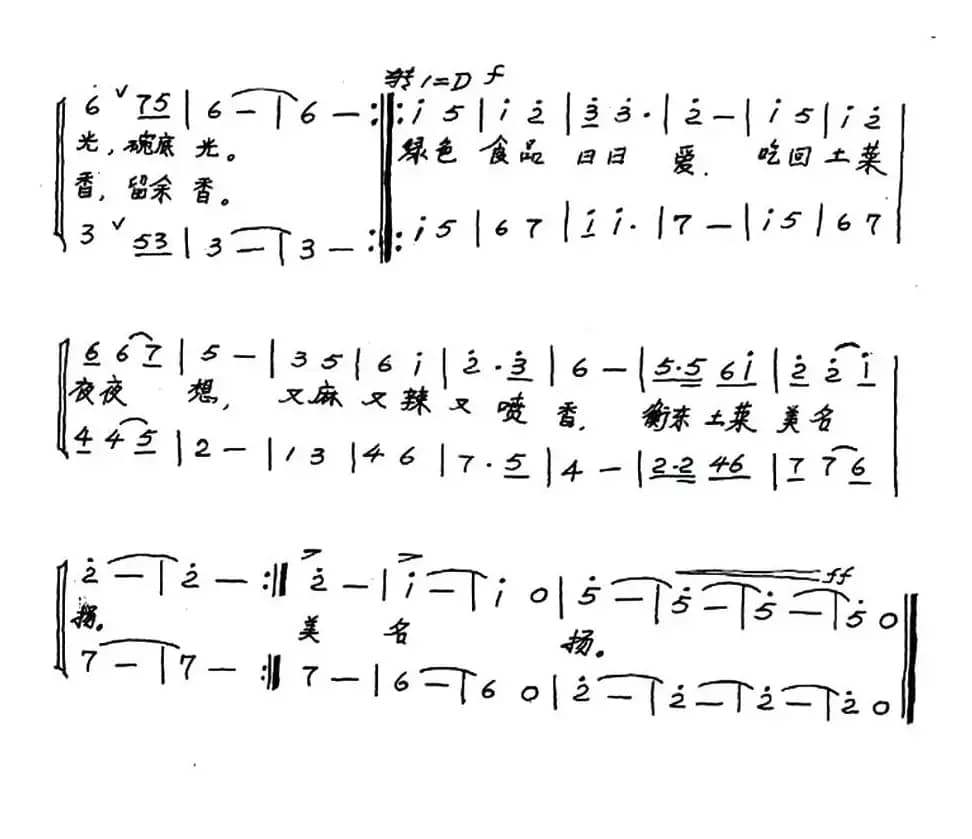 转1=D f
6 ∨ 75 | 6 — | 6 — :‖: i 5 | i 2̇ | 3̇ 3̇· | 2̇ — | i 5 | i 2̇
光，碗底 光。 绿色 食品 日日 爱. 吃回 土菜
香，留余 香。
3 ∨ 53 | 3 — | 3 — :‖: i 5 | 6 7 | i i· | 7 — | i 5 | 6 7 |
6 6 7 | 5 — | 3 5 | 6 i | 2̇· 3̇ | 6 — | 5·5 6i | 2̇ 2̇ i
夜夜 想, 又麻 又辣 又喷 香, 衡东 土菜 美名
4 4 5 | 2 — | 1 3 | 4 6 | 7· 5 | 4 — | 2·2 46 | 7 7 6 |
2̇ — | 2̇ — :‖ > 2̇ — | > i — | i 0 | 5̇ — | 5̇ — | 5̇ — | ff 5̇ 0 ‖
扬。 美 名 扬。
7 — | 7 — :‖ 7 — | 6 — | 6 0 | 2̇ — | 2̇ — | 2̇ — | 2̇ 0 ‖